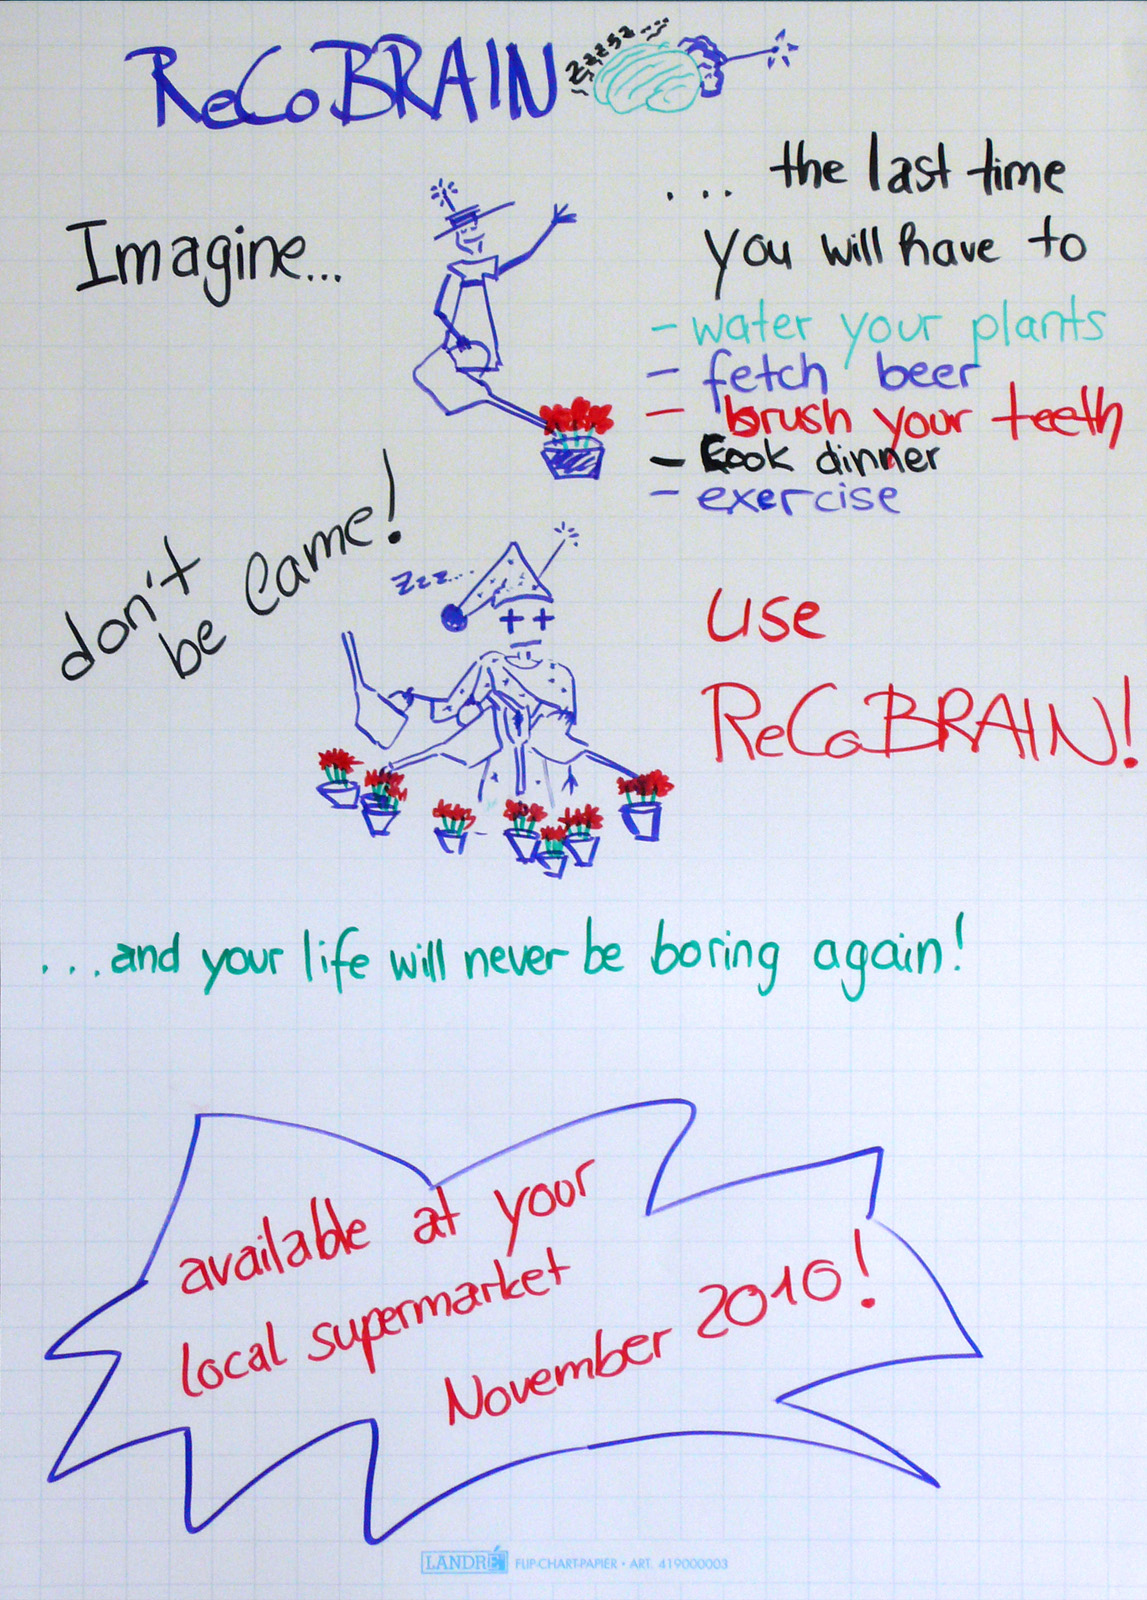 ReCoBRAIN
zzzzz
Imagine...
... the last time
you will have to
- water your plants
- fetch beer
- brush your teeth
- Cook dinner
- exercise
don't
be lame!
zzz...
use
ReCoBRAIN!
...and your life will never be boring again!
available at your
local supermarket
November 2010!
LANDRÉ FLIP-CHART-PAPIER • ART. 419000003